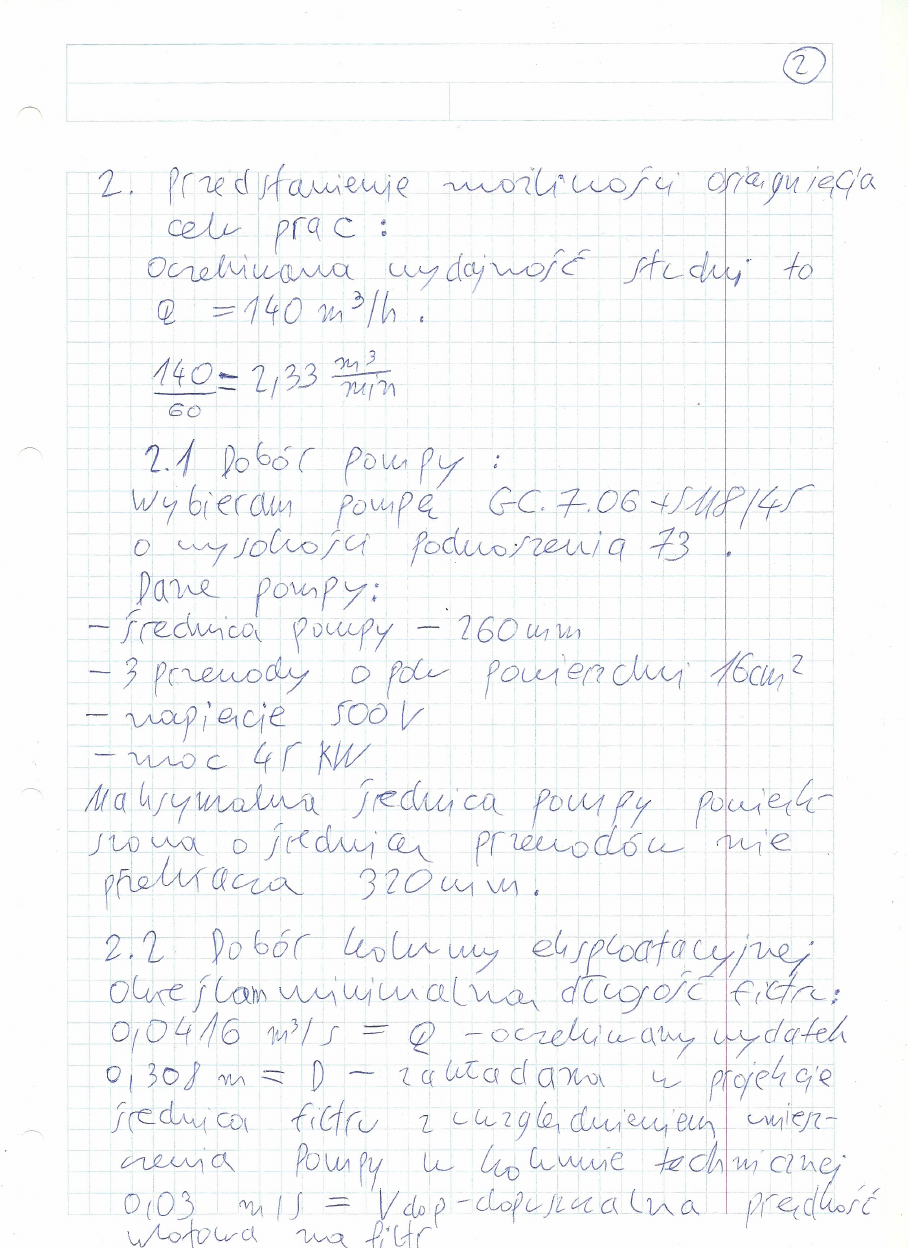 2
2. Przedstawienie możliwości osiągnięcia
celu prac :
Oczekiwana wydajność studni to
Q = 140 m³/h .
140/60 = 2,33 m³/min
2.1 Dobór pompy :
Wybieram pompę GC.7.06 +S118/45
o wysokości podnoszenia 73 .
Dane pompy:
- średnica pompy - 260mm
- 3 przewody o polu powierzchni 16cm²
- napięcie 500 V
- moc 45 KW
Maksymalna średnica pompy powięk-
szona o średnicę przewodów nie
przekracza 320mm.
2.2 Dobór kolumny eksploatacyjnej
Określam minimalną długość filtru:
0,0416 m³/s = Q - oczekiwany wydatek
0,308 m = D - zakładana w projekcie
średnica filtru z uwzględnieniem umiesz-
czenia Pompy w kolumnie technicznej
0,03 m/s = Vdop - dopuszczalna prędkość
wlotowa na filtr